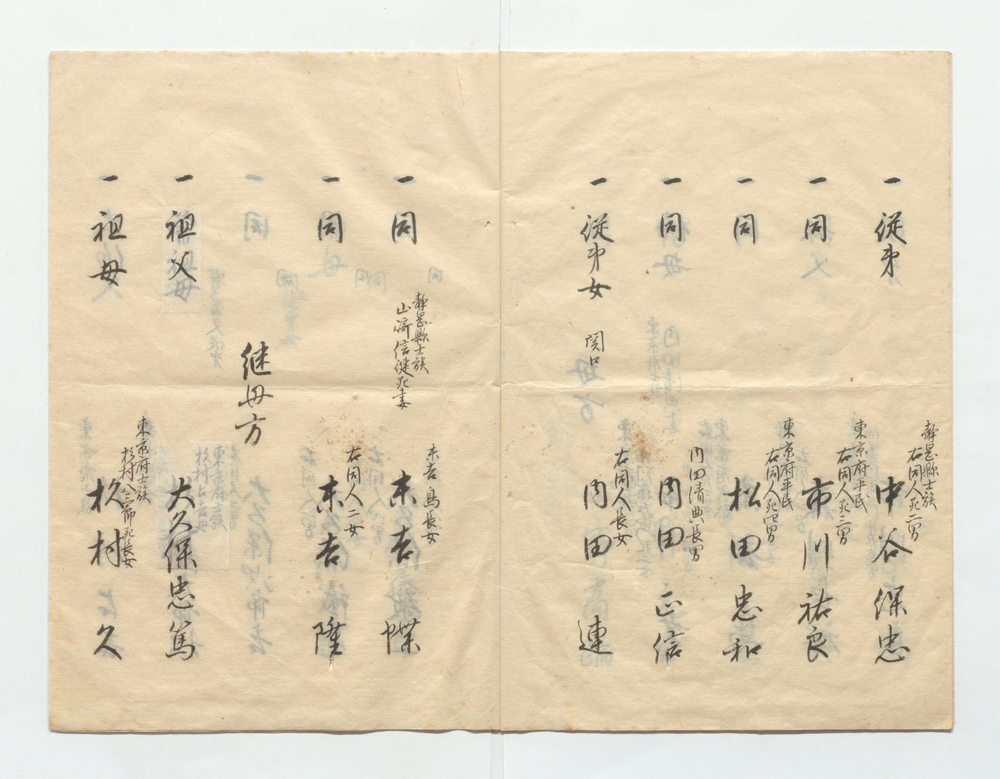 一 従弟
静岡縣士族
右同人死二男
中谷保忠
一 同
東京府平民
右同人死三男
市川祐良
一 同
東京府平民
右同人死四男
松田忠和
一 同
内田清典長男
内田正信
一 従弟女
関口
右同人長女
内田連
一 同
静岡縣士族
山崎信健死妻
末吉鳥長女
末吉蝶
一 同
右同人二女
末吉隆
一 同
継母方
一 祖父
大久保忠篤
一 祖母
東京府士族
杉村八三郎死長女
杉村久